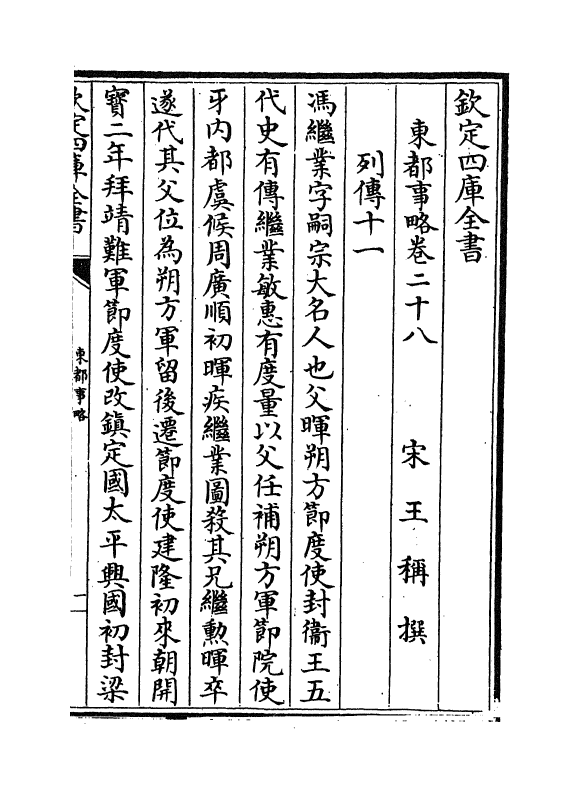 欽定四庫全書
東都事略卷二十八　宋　王　稱　撰
列傳十一
馮繼業字嗣宗大名人也父暉朔方節度使封衞王五
代史有傳繼業敏惠有度量以父任補朔方軍節院使
牙内都虞候周廣順初暉疾繼業圖殺其兄繼勲暉卒
遂代其父位為朔方軍留後遷節度使建隆初來朝開
寶二年拜靖難軍節度使改鎮定國太平興國初封梁
欽定四庫全書
東都事略